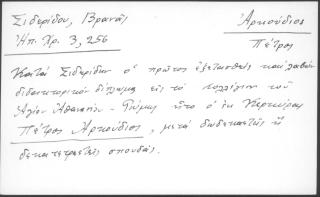 Σιδερίδου, Βρανᾶς
Ἠπ. Χρ. 3, 256
Ἀρκούδιος
Πέτρος
Κατά Σιδερίδην ὁ πρῶτος ἐξετασθείς καί λαβών
διδακτορικόν δίπλωμα εἰς τό Κολλέγιον τοῦ
Ἁγίου Ἀθανασίου - Ρώμης ἦτο ὁ ἐκ Κερκύρας
Πέτρος Ἀρκούδιος, μετά δωδεκαετεῖς ἤ
δεκατετραετεῖς σπουδάς.